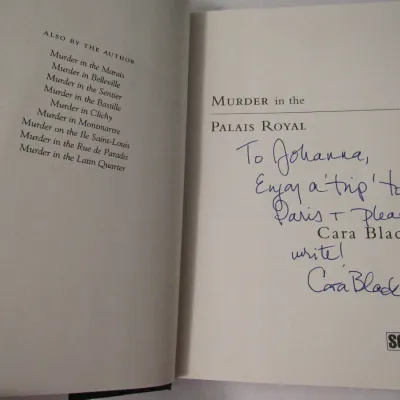 ALSO BY THE AUTHOR
Murder in the Marais
Murder in Belleville
Murder in the Sentier
Murder in the Bastille
Murder in Clichy
Murder in Montmartre
Murder on the Ile Saint-Louis
Murder in the Rue de Paradis
Murder in the Latin Quarter
MURDER in the
PALAIS ROYAL
To Johanna,
Enjoy a 'trip' to
Paris + pleas
Cara Blac
write!
Cara Black
SO